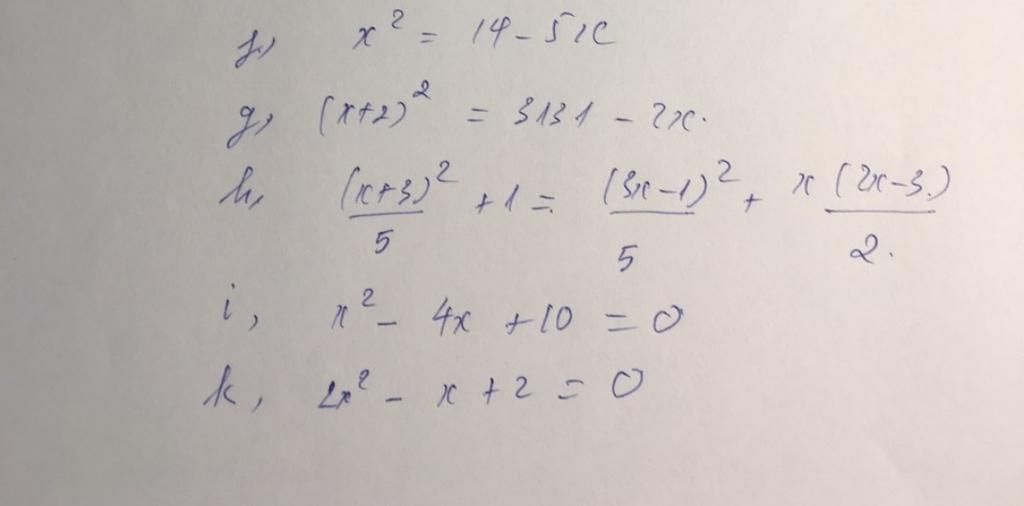 f, x² = 14 - 5x
g, (x+2)² = 3131 - 2x.
h, (x+3)²/5 + 1 = (3x-1)²/5 + x(2x-3)/2.
i, x² - 4x + 10 = 0
k, 2x² - x + 2 = 0